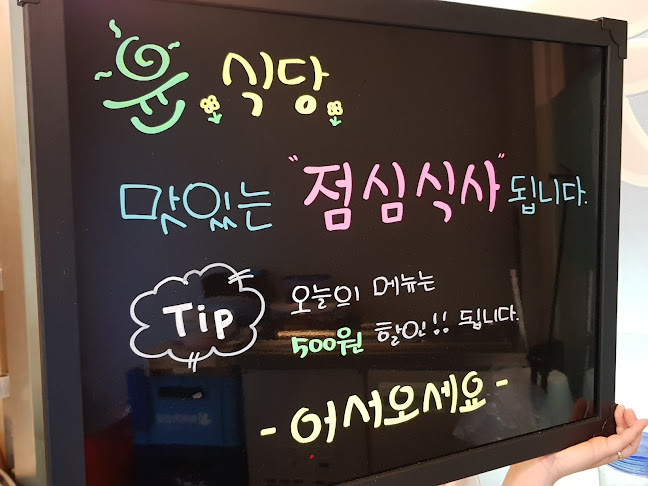 윤식당
맛있는 "점심식사" 됩니다.
Tip
오늘의 메뉴는
500원 할인!! 됩니다.
-어서오세요-